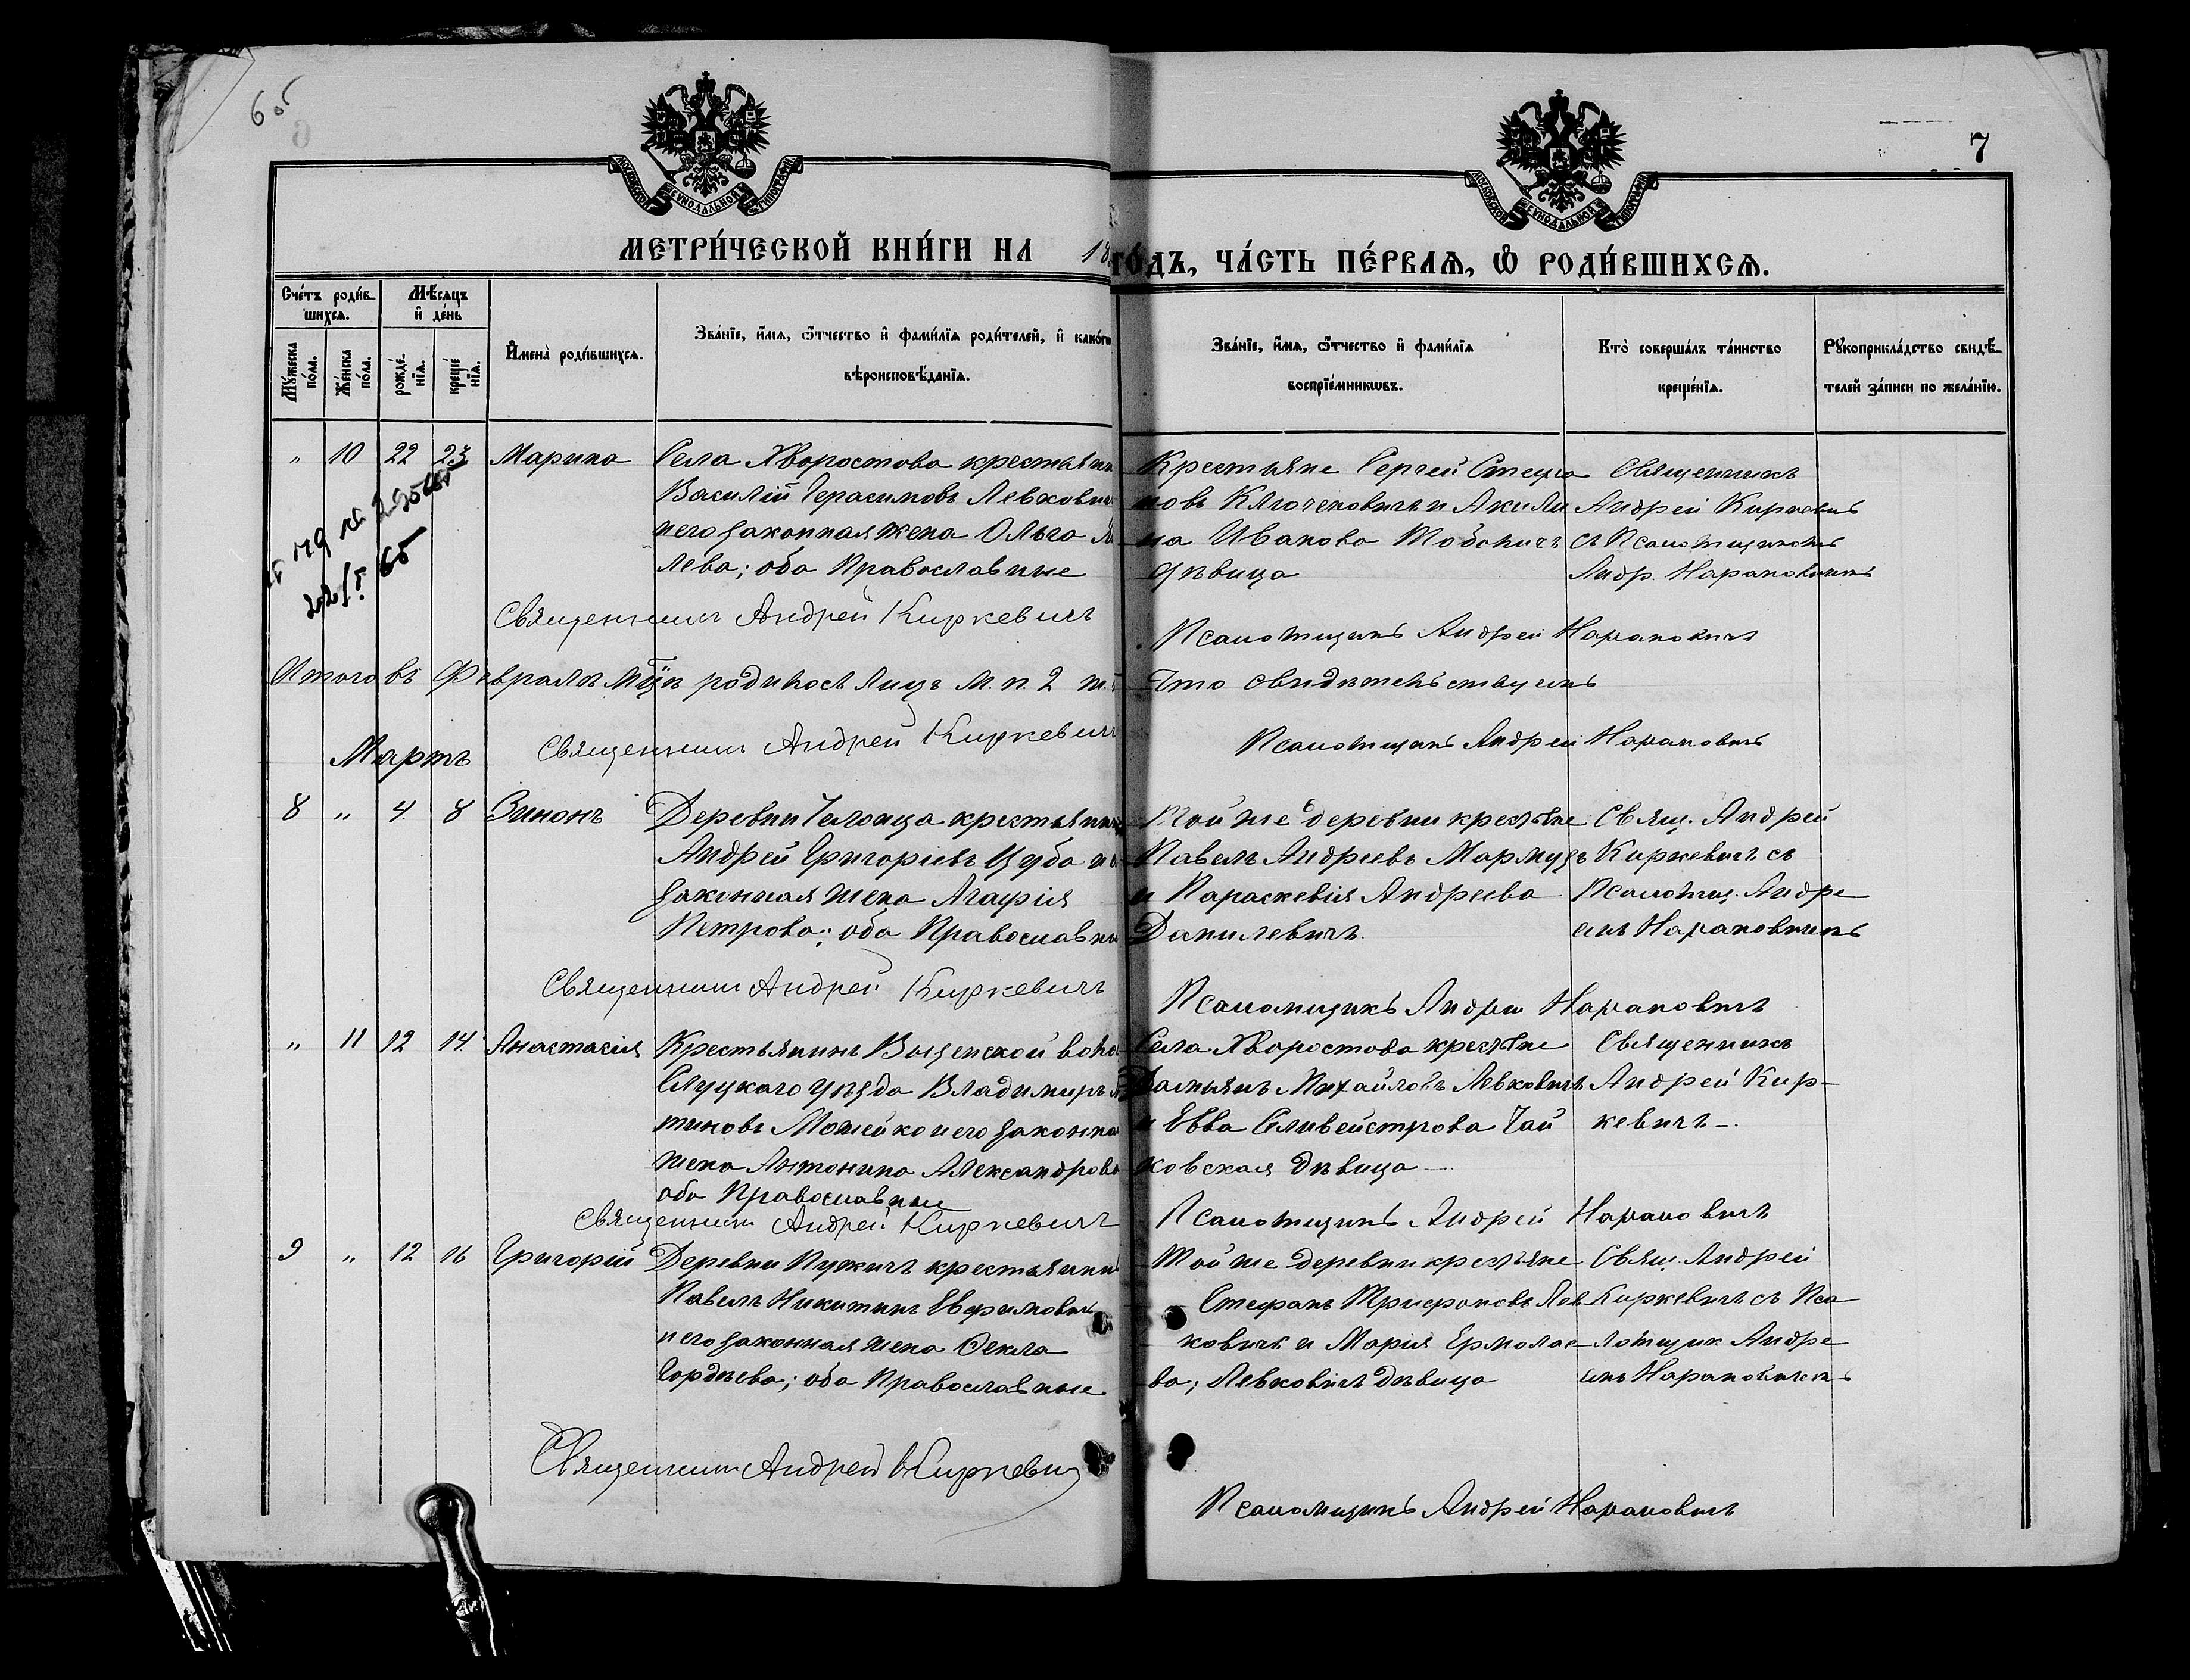 6 об
7
МОСКОВСКОЙ СѴНОДАЛЬНОЙ ТИПОГРАФІИ
МОСКОВСКОЙ СѴНОДАЛЬНОЙ ТИПОГРАФІИ
МЕТРИ́ЧЕСКОЙ КНИ́ГИ НА 18
ГО́ДЪ, ЧА́СТЬ ПЕ́РВАѦ, Ѡ РОДИ́ВШИХСѦ.
Сче́тъ роди́в-
шихсѧ.
Мѣсѧцъ
и де́нь
Мꙋжеска по́ла.
Же́нска по́ла.
рожде́-
нїѧ.
креще́
нїѧ.
И҆мена̀ роди́вшихсѧ.
Зва́нїе, и҆́мѧ, ѻ҆́тчество и҆ фами́лїѧ роди́телей, и҆ како́гѡ
вѣроисповѣ́данїѧ.
Зва́нїе, и҆́мѧ, ѻ҆́тчество и҆ фами́лїѧ
воспрїе́мникѡвъ.
Кто̀ соверша́лъ та́инство
креще́нїѧ.
Рꙋкоприкла́дство свидѣ́-
телей за́писи по жела́нїю.
" 10 22 23 Марина
Села Хворостова крестьянин
Василій Герасимовъ Левкович
и его законная жена Ольга
лева; оба Православные
Крестьяне Сергей Стефа
новъ Ключеновичъ и Акили
на Иванова Тобовичъ
дѣвица
Священникъ
Андрей Киркевичъ
съ Псаломщикомъ
Андр. Нарановичемъ
Священникъ Андрей Киркевичъ
Псаломщикъ Андрей Нарановичъ
Итого въ Февралѣ м-цѣ родилось лицъ м. п. 2
Что свидѣтельствуемъ
Священникъ Андрей Киркевичъ
Псаломщикъ Андрей Нарановичъ
Мартъ
8 " 4 8 Зинонъ
Деревни Челонца крестьянинъ
Андрей Григоріевъ Цуба и
законная жена Агафія
Петрова; оба Православны
Той же деревни крестьяне
Павелъ Андреевъ Мармузъ
и Параскевія Андреева
Данилевичъ.
Свящ. Андрей
Киркевичъ съ
Псаломщ. Андре
емъ Нарановичемъ
Священникъ Андрей Киркевичъ
Псаломщикъ Андрей Нарановичъ
" 11 12 14 Анастасія
Крестьянинъ Вызенской воло
Слуцкаго уѣзда Владимиръ
тиновъМожейко и его законна
жена Антонина Александрова
оба Православные
Села Хворостова крестьяне
Дамьянъ Михайловъ Левковичъ
и Евва Селивейстрова Чай
ковская дѣвица
Священникъ
Андрей Кир-
кевичъ-
Священникъ Андрей Киркевичъ
Псаломщикъ Андрей Нарановичъ
9 " 12 16 Григорій
Деревни Пузичъ крестьянинъ
Павелъ Никитинъ Евфимович
и его законная жена Ѳекла
Гордѣева; оба Православные
Той же деревни крестьяне
Стефанъ Трифоновъ Лев
ковичъ и Марія Ермолае
ва, Левковичъ дѣвица
Свящ. Андрей
Киркевичъ съ Пса
ломщик Андре
емъ Нарановичемъ
Священникъ Андрей Киркевич
Псаломщикъ Андрей Нарановичъ